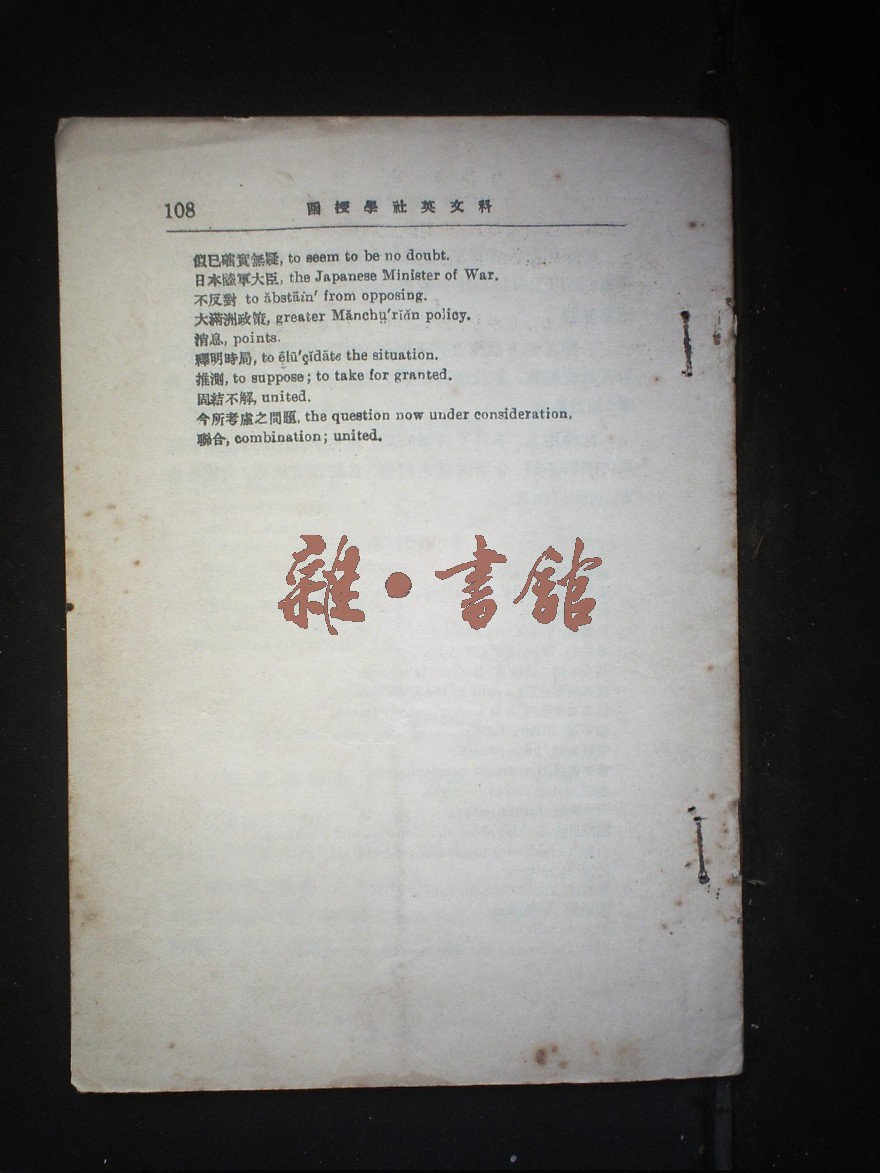 108 函授學社英文科
假已確實無疑, to seem to be no doubt.
日本陸軍大臣, the Japanese Minister of War.
不反對 to ăbstāin′ from opposing.
大滿洲政策, greater Mănchṳ′rĭăn policy.
消息, points.
釋明時局, to ḗlū′çĭdāte the situation.
推測, to suppose; to take for granted.
固結不解, united.
今所考慮之問題, the question now under consideration.
聯合, combination; united.
雜·書館